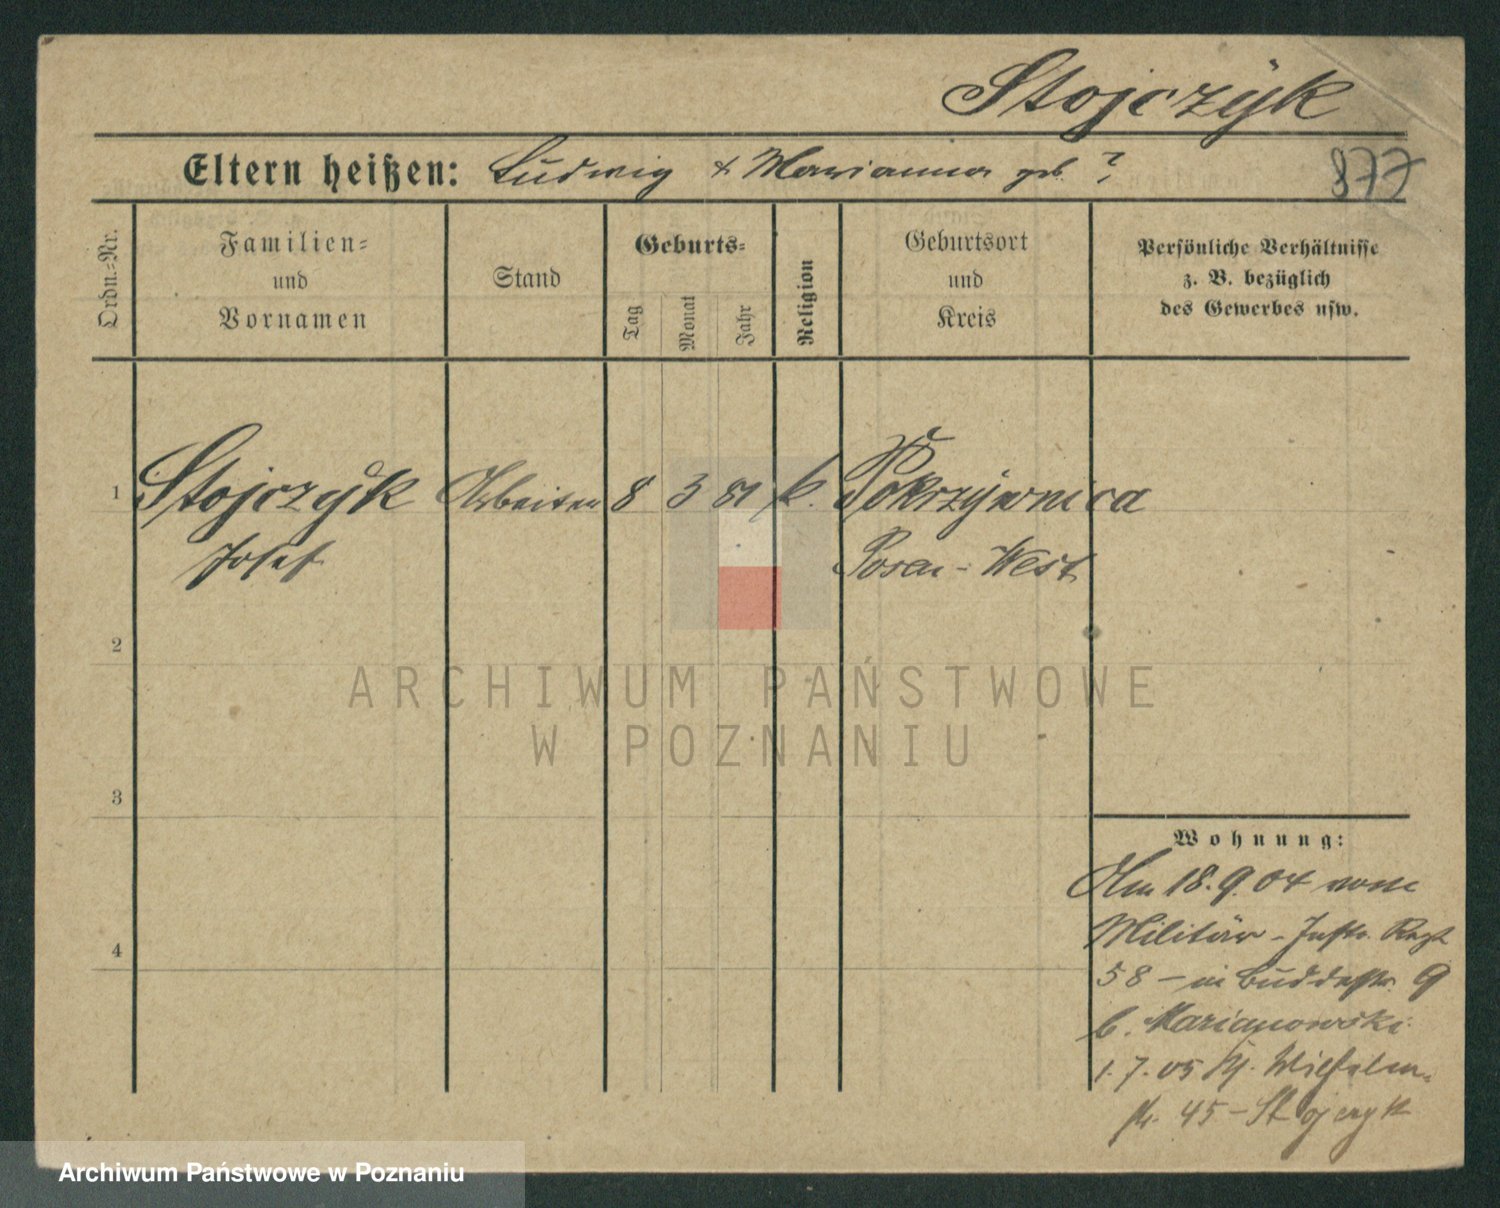 Stojczÿk
Eltern heißen: Ludwig & Marianna geb. ?
877
Ordn.-Nr.
Familien-
und
Vornamen
Stand
Geburts-
Tag
Monat
Jahr
Religion
Geburtsort
und
Kreis
Persönliche Verhältnisse
z. B. bezüglich
des Gewerbes usw.
1 Stojczÿk Arbeiter 8 3 81 k. Pokrzÿwnica
Josef Posen-West
2
3
4
ARCHIWUM PAŃSTWOWE
W POZNANIU
Wohnung:
Am 18.9.04 vom
Militär - Inftr. Regt
58 - in Buddestr. 9
b. Marianowski
1.7.05 Wilhelm-
str. 45 - Stojczyk
Archiwum Państwowe w Poznaniu